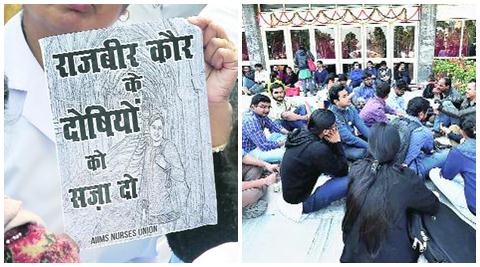 राजबीर कौर
के
दोषियों
को
सज़ा दो
AIIMS NURSES UNION